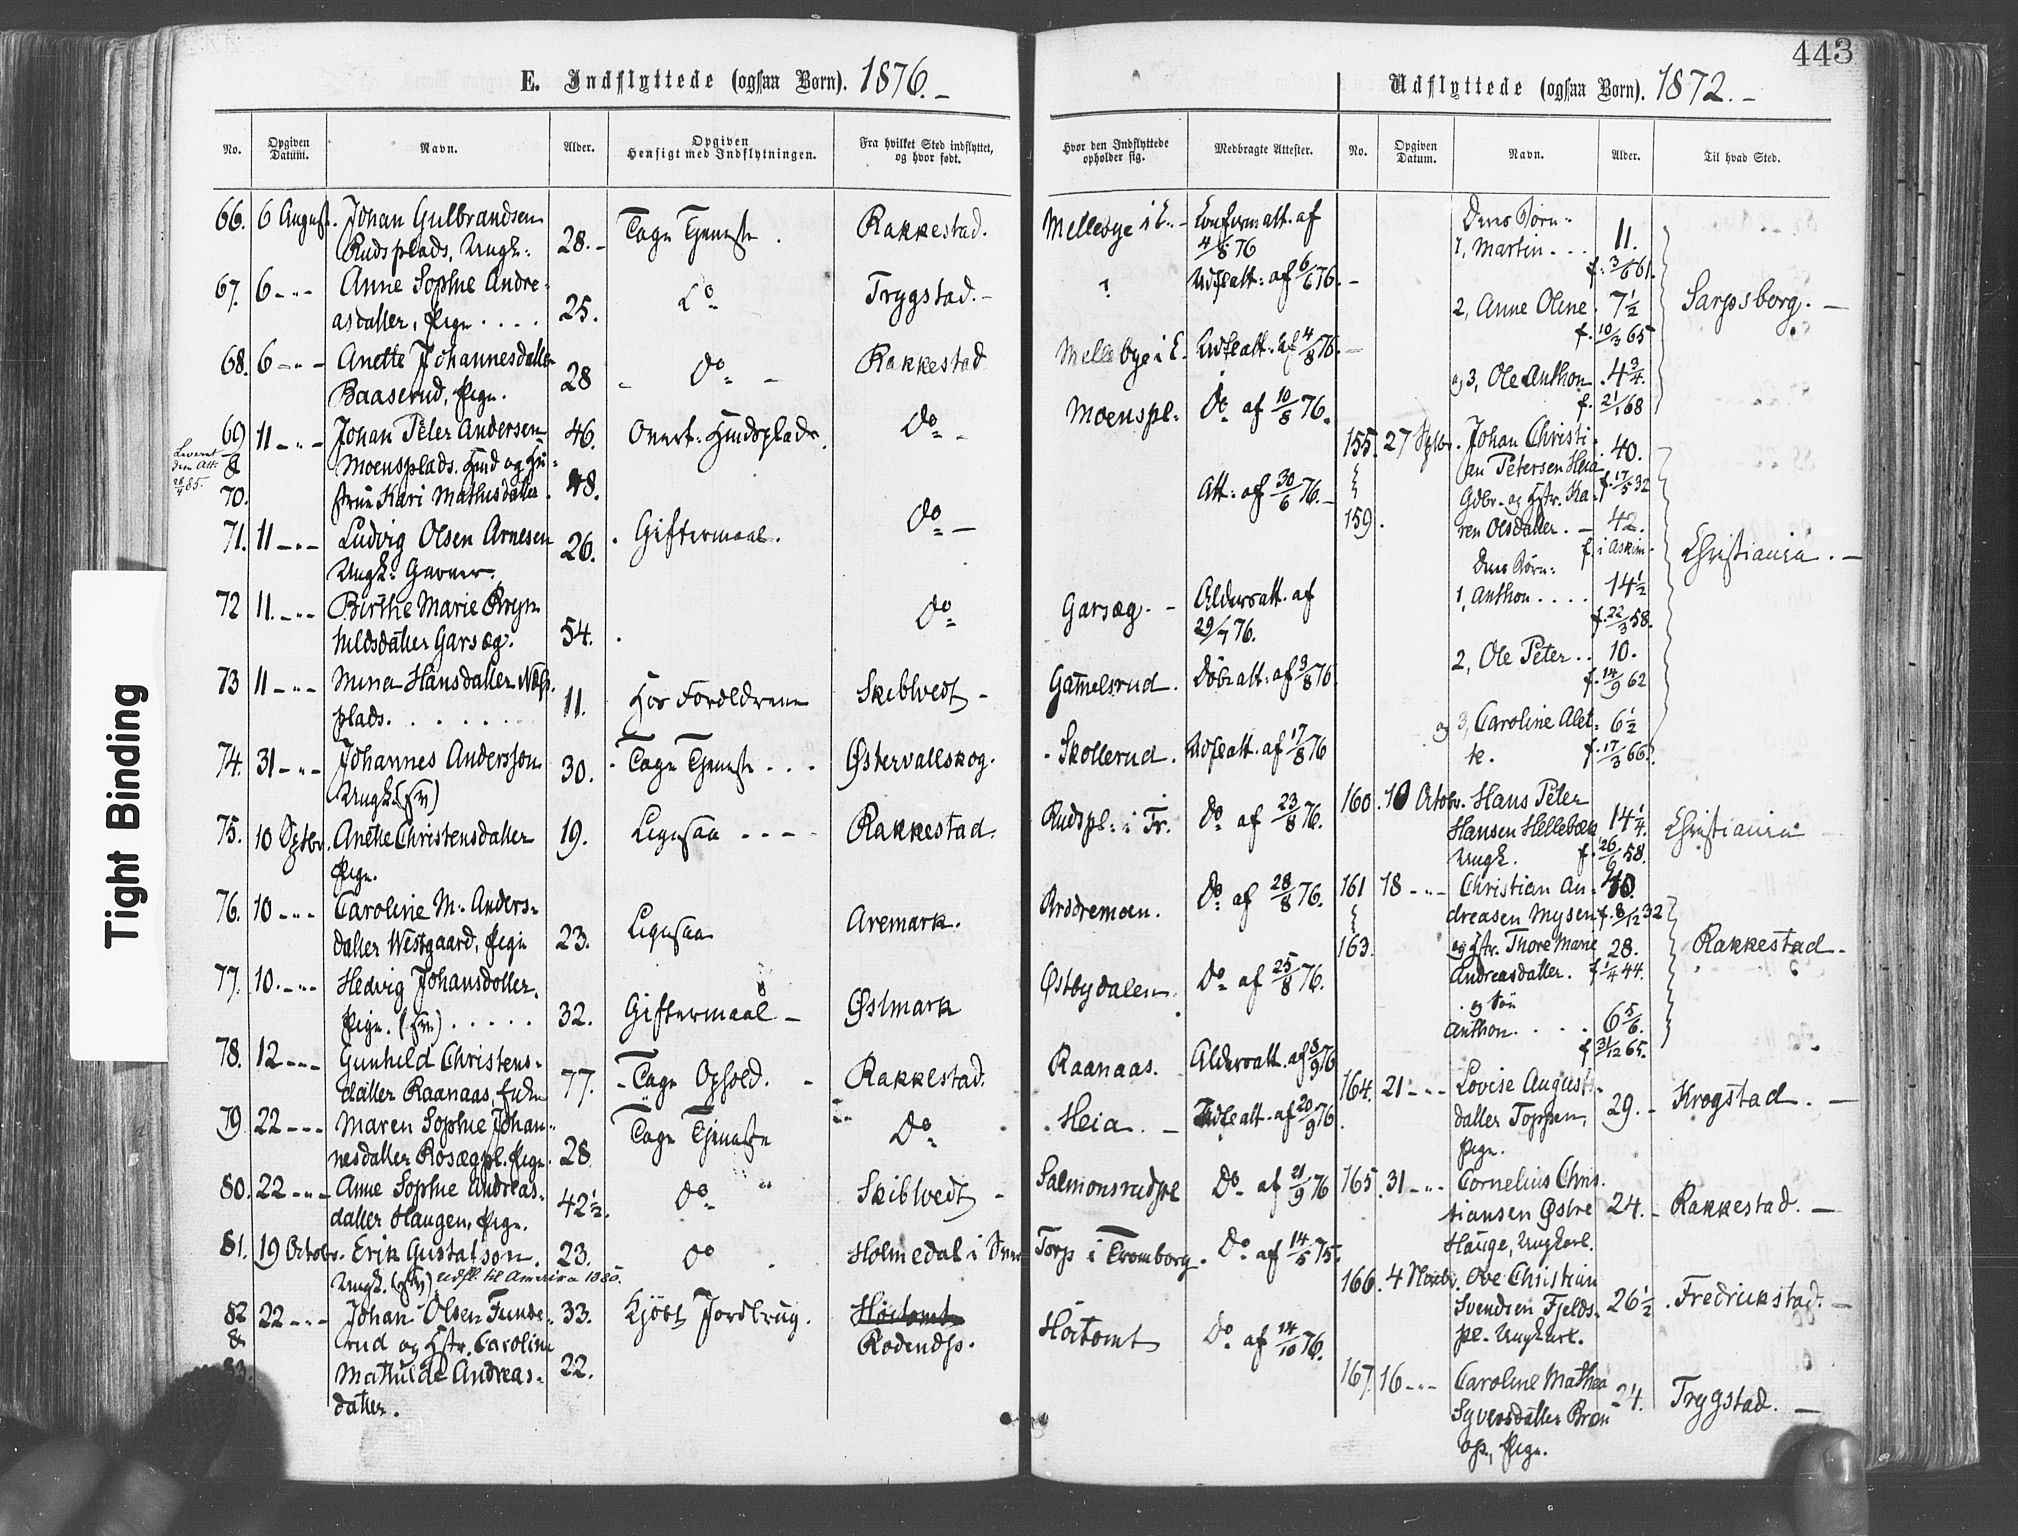 443
E. Indflyttede (ogsaa Børn). 1876.
Udflyttede (ogsaa Børn). 1872.
No.
Opgiven Datum.
Navn.
Alder.
Opgiven Hensigt med Indflytningen.
Fra hvilket Sted indflyttet, og hvor født.
Hvor den Indflyttede opholder sig.
Medbragte Attester.
No.
Opgiven Datum.
Navn.
Alder.
Til hvad Sted.
66. 6 August. Johan Gulbrandsen
Rudsplads, Ungk: 28. Tage Tjeneste. Rakkestad. Mellebye i E. Confirm att. af 4/8 76
67. 6 Anne Sophie Andre-
asdatter, Pige. 25. Do Trygstad. ? Udfl att: af 6/6 76.
68. 6 Anette Johannesdatter
Baaserud, Pige. 28 Do Rakkestad Mellebye i E. Udfl att. af 4/8 76.
69 11 Johan Peter Andersen 46. Overt. Husplads. Do Moenspl. Do af 10/8 76.
Leveret
dem Att.
28/4 85.
& Moensplads. Husmd og Hu-
70. strue Kari Mathisdatter. 48. Att: af 30/6 76.
71. 11 Ludvig Olsen Arnesen 26. Giftermaal. Do
Ungk: Garver.
72 11. Birthe Marie Bryn-
hildsdatter Garsæg. 54. Do Garsæg. Aldersatt. af 29/7 76.
73 11 Mina Hansdatter Næss-
plads. 11. Hos Forældrene Skibtvedt Gamelsrud. Døbeatt: af 9/8 76
74. 31 Johannes Andersson 30. Tage Tjeneste Østervallskog. Skollerud. Udfl att. af 17/8 76
Ungk. (sv)
75. 10 Septbr. Anette Christensdatter 19. Ligesaa Rakkestad. Rudspl. i Fr. Do af 23/8 76.
Pige.
76. 10 Caroline M. Anders-
datter Westgaard, Pige 23. Ligesaa Aremark. Do af 28/8 76.
77. 10. Hedvig Johansdotter.
Pige. (sv) 32. Giftermaal Østmark Østbydalen. Do af 25/8 76.
78. 12 Gunhild Christens-
datter Raanaas, Enke 77. Tage Ophold. Rakkestad. Raanaas. Aldersatt. af 8/9 76
79. 22 Maren Sophie Johan-
nesdatter Rosægpl. Pige. 28. Tage Tjeneste Do Heia. Udfl att. af 20/9 76.
80. 22 Anne Sophie Andreas-
datter Haugen, Pige. 42½. Do Skibtvedt Salmonsrudpl Do af 21/9 76
81. 19 Octobr. Erik Gustafson. 23. Do Holmedal i Torp i Tromborg. Do af 14/5 75.
Ungk. (sv). Udfl. til America 1880.
82 22 Johan Olsen Funde- 33. Kjøbt Jordbrug. Rodenæs. Høitomt Do af 14/10 76.
& rud og Hstr. Caroline
83. Mathilde Andreas- 22.
datter.
Deres Børn:
1, Martin 11.
f. 3/6 61.
2, Anne Oline 7½ Sarpsborg.
f. 10/3 65
og 3, Ole Anthon 4¾.
f. 21/1 68
155. 27 Septbr. Johan Christi- 40.
an Petersen Heia f. 17/5 32
Gdbr. og Hstr. Ka-
159. ren Olsdatter. 42.
f. i Askim. Christiania.
Deres Børn:
1, Anthon 14½
f. 22/3 58.
2, Ole Peter 10.
f. 14/9 62
og 3, Caroline Alet- 6½
te. f. 17/3 66.
160. 10 Octobr. Hans Peter
Hansen Hellebæk 14¼. Christiania
Ungk. f. 26/6 58.
161 18 Christian An- 40
dreasen Mysen f. 8/12 32
163. og Hstr. Thore Marie 28. Rakkestad.
Andreasdatter. f. 1/4 44.
og Søn
Anthon. 6 5/6.
f. 31/12 65.
164. 21 Lovise August-
datter Toppen, 29. Krogstad.
Pige.
165. 31 Cornelius Chris-
tiansen Østre 24. Rakkestad.
Hauge, Ungkarl.
166. 4 Novbr. Ove Christian
Svendsen Fjelds- 26½. Fredrikstad.
pl. Ungkarl.
167. 16 Caroline Mathea
Syversdatter Bræn 24. Trygstad.
Pige.
Tight Binding